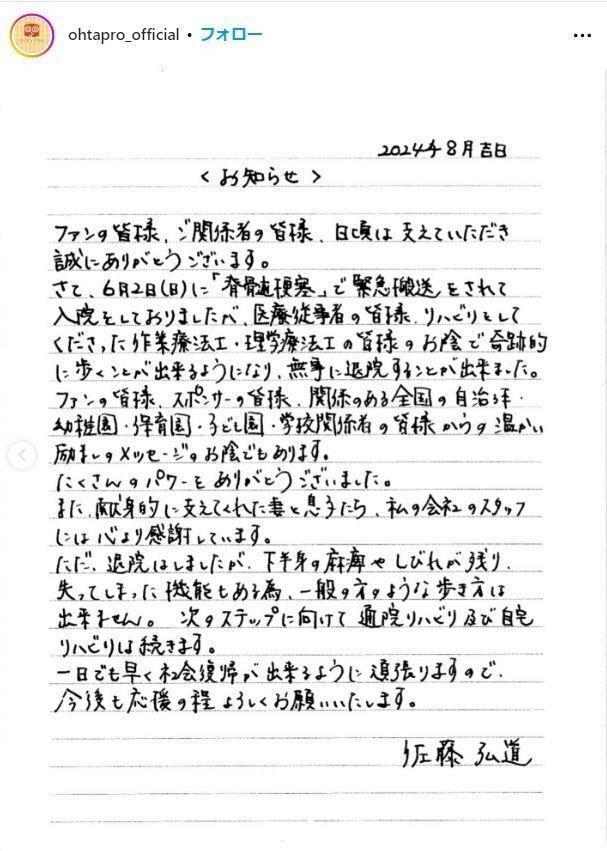 ohtapro_official • フォロー
2024年8月吉日
＜お知らせ＞
ファンの皆様、ご関係者の皆様、日頃は支えていただき
誠にありがとうございます。
さて、6月2日(日)に「脊髄梗塞」で緊急搬送をされて
入院をしておりましたが、医療従事者の皆様、リハビリをして
くださった作業療法士・理学療法士の皆様のお陰で奇跡的
に歩くことが出来るようになり、無事に退院することが出来ました。
ファンの皆様、スポンサーの皆様、関係のある全国の自治体・
幼稚園・保育園・子ども園・学校関係者の皆様からの温かい
励ましのメッセージのお陰でもあります。
たくさんのパワーをありがとうございました。
また、献身的に支えてくれた妻と息子たち、私の会社のスタッフ
には心より感謝しています。
ただ、退院はしましたが、下半身の麻痺やしびれが残り、
失ってしまった機能もある為、一般の方のような歩き方は
出来ません。次のステップに向けて通院リハビリ及び自宅
リハビリは続きます。
一日でも早く社会復帰が出来るように頑張りますので、
今後も応援の程よろしくお願いいたします。
佐藤弘道